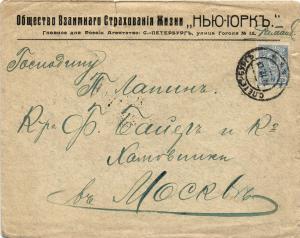 Общество Взаимнаго Страхованія Жизни „НЬЮ-ІОРКЪ."
Главное для Россіи Агентство: С.-ПЕТЕРБУРГЪ, улица Гоголя №
Господину
Т. Лапинъ.
Кр. Ф. Байдъ и Ко
Хамовники
въ Москвѣ